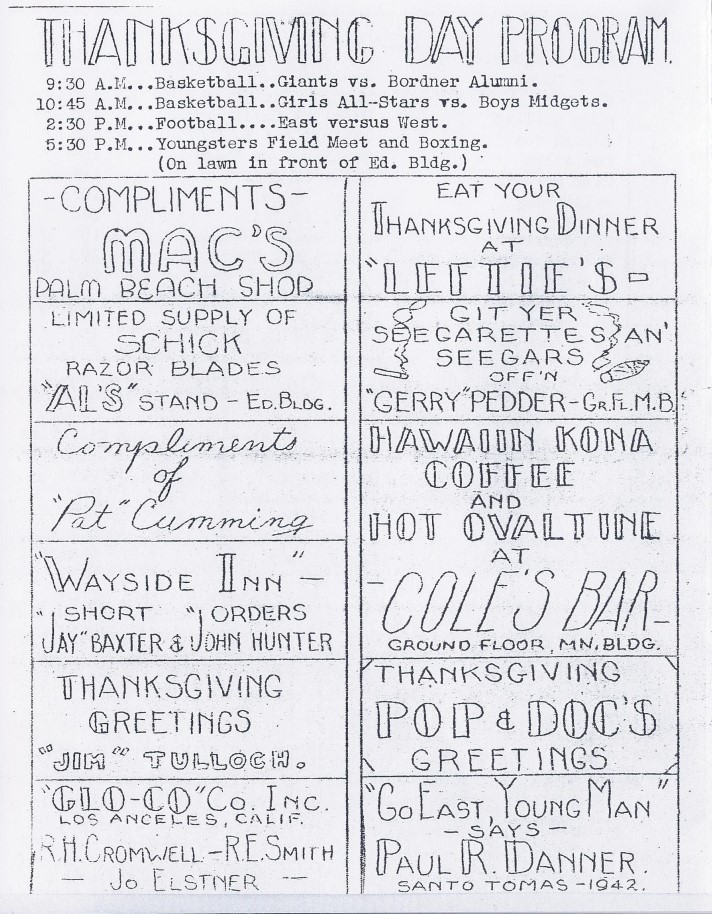 THANKSGIVING DAY PROGRAM.
9:30 A.M...Basketball..Giants vs. Bordner Alumni.
10:45 A.M...Basketball..Girls All-Stars vs. Boys Midgets.
2:30 P.M...Football....East versus West.
5:30 P.M...Youngsters Field Meet and Boxing.
(On lawn in front of Ed. Bldg.)
-COMPLIMENTS-
MAC'S
PALM BEACH SHOP
LIMITED SUPPLY OF
SCHICK
RAZOR BLADES
"AL'S" STAND - ED.BLDG.
Compliments
of
"Pat" Cumming
"WAYSIDE INN"-
SHORT ORDERS
"JAY" BAXTER & JOHN HUNTER
THANKSGIVING
GREETINGS
"JIM" TULLOCH.
"GLO-CO" CO. INC.
LOS ANGELES, CALIF.
R.H.CROMWELL-R.E.SMITH
- JO ELSTNER -
EAT YOUR
THANKSGIVING DINNER
AT
"LEFTIE'S-
GIT YER
SEEGARETTES AN'
SEEGARS
OFF'N
"GERRY" PEDDER-GR.FL.M.B.
HAWAIIN KONA
COFFEE
AND
HOT OVALTINE
AT
-COLE'S BAR-
GROUND FLOOR, MN. BLDG.
THANKSGIVING
POP & DOC'S
GREETINGS
"GO EAST, YOUNG MAN"
-SAYS-
PAUL R. DANNER.
SANTO TOMAS-1942.